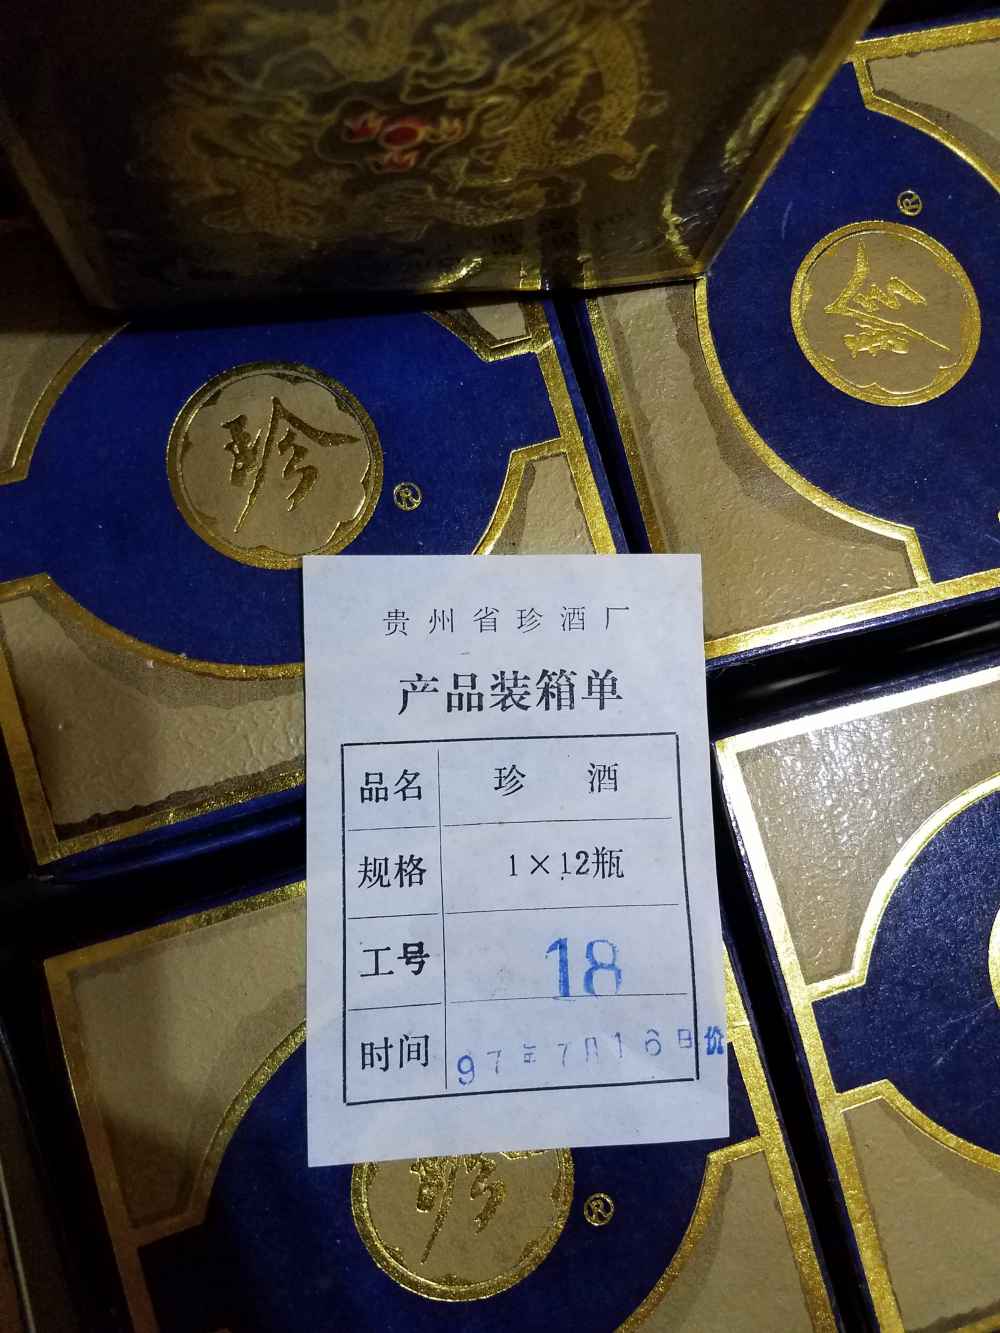 珍
®
珍
®
贵州省珍酒厂
产品装箱单
品名 珍 酒
规格 1×12瓶
工号 18
时间 97年7月16日价
珍
®